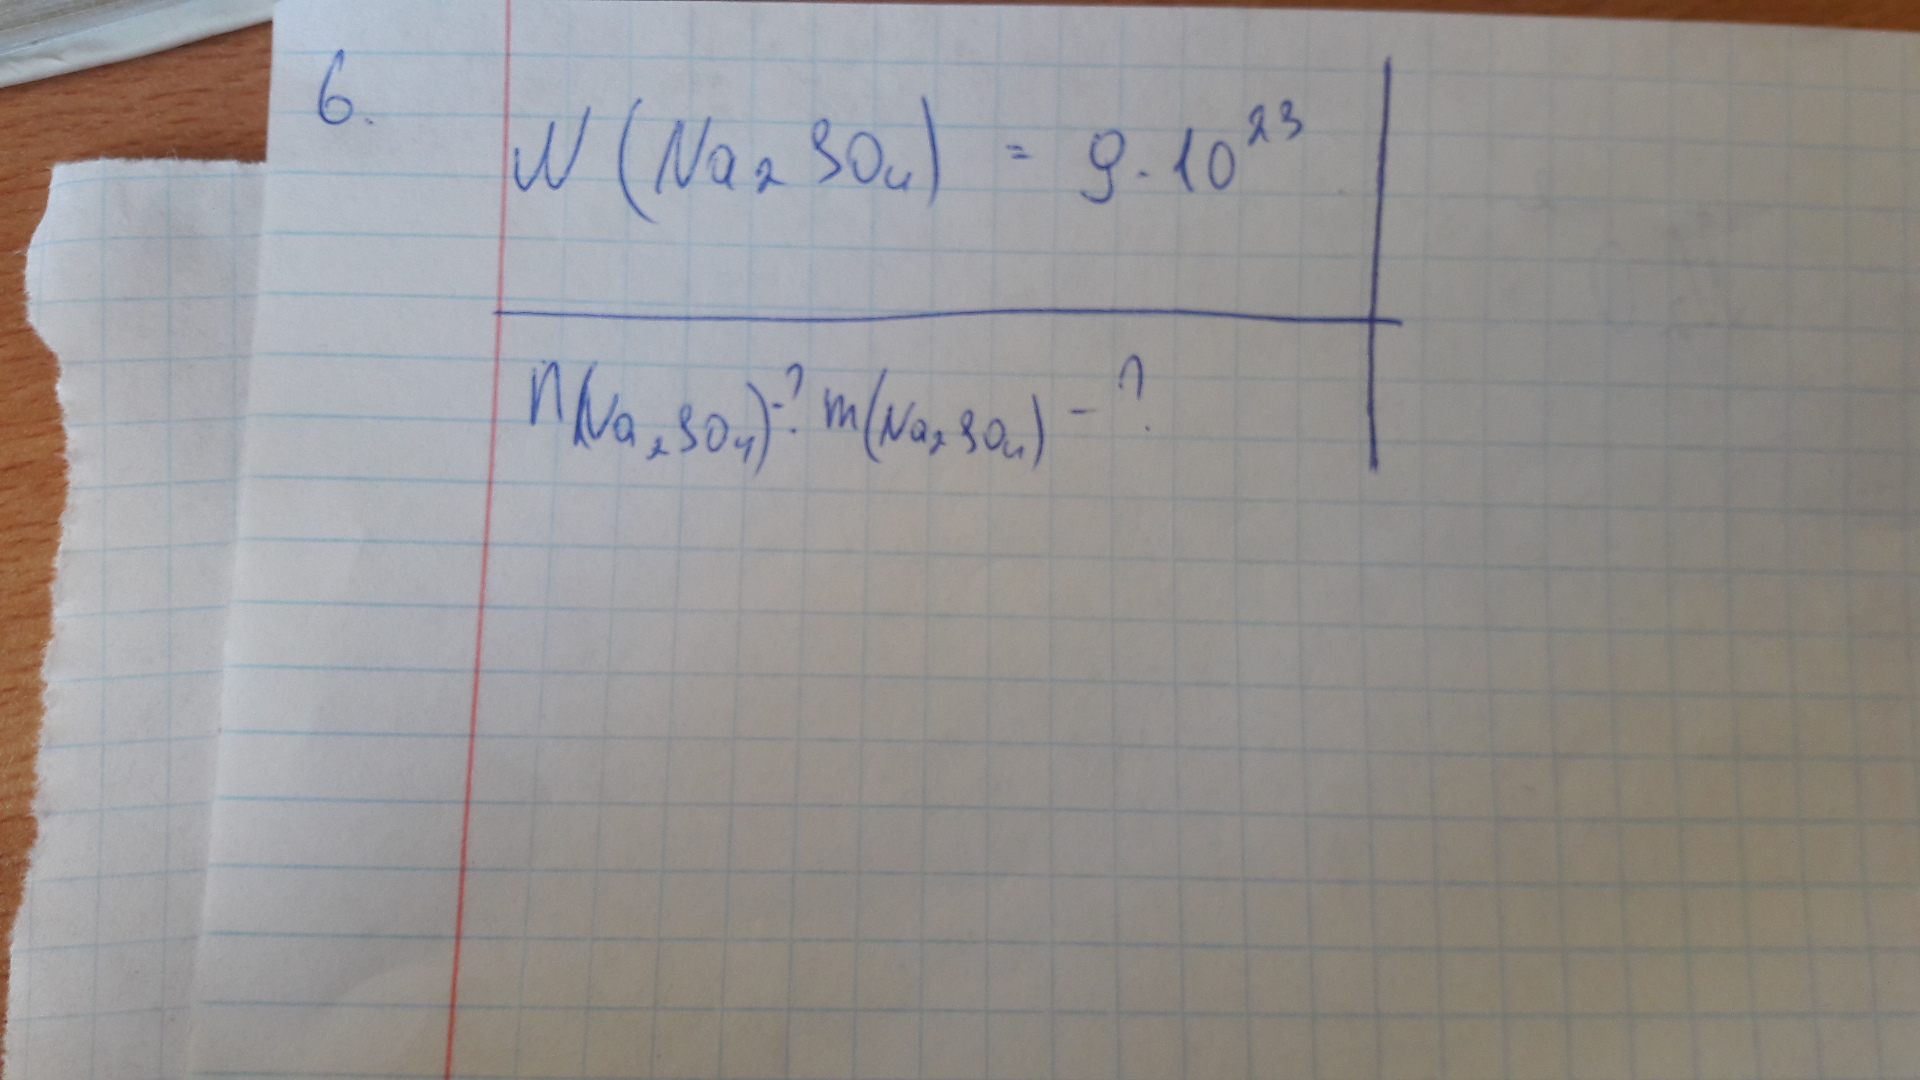 6.
N (Na₂SO₄) = 9 · 10²³
n(Na₂SO₄)-? m(Na₂SO₄) - ?